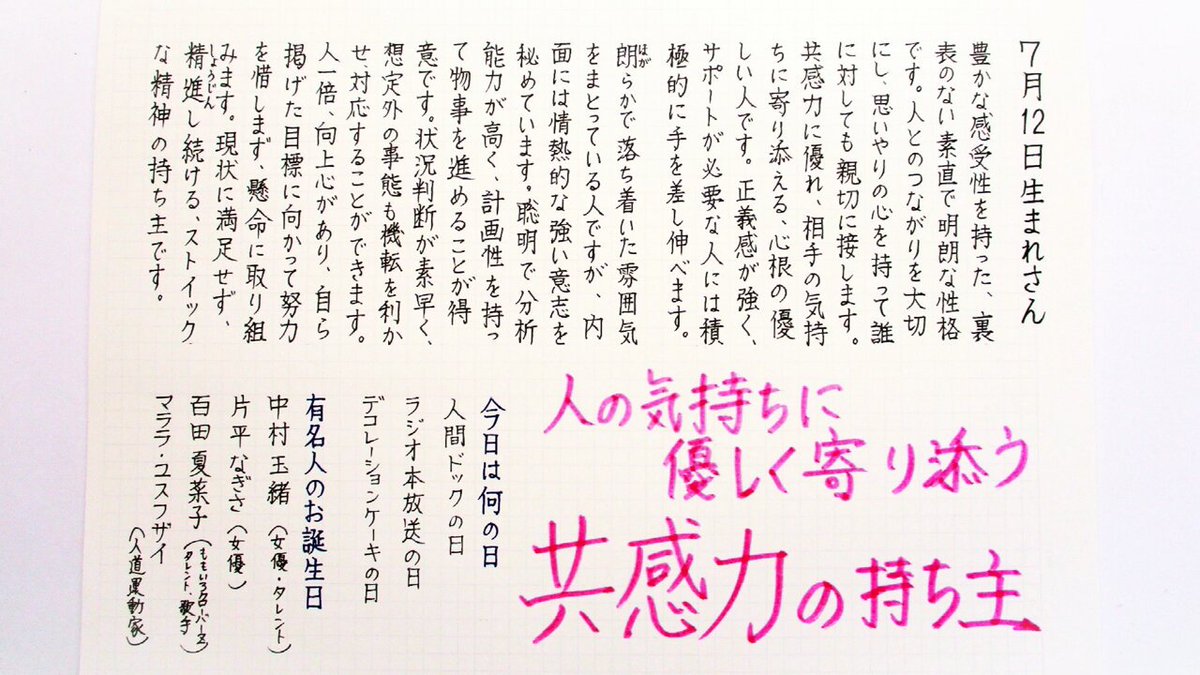 7月12日生まれさん
豊かな感受性を持った、裏
表のない素直で明朗な性格
です。人とのつながりを大切
にし、思いやりの心を持って誰
に対しても親切に接します。
共感力に優れ、相手の気持
ちに寄り添える、心根の優
しい人です。正義感が強く、
サポートが必要な人には積
極的に手を差し伸べます。
朗らかで落ち着いた雰囲気
をまとっている人ですが、内
面には情熱的な強い意志を
秘めています。聡明で分析
能力が高く、計画性を持っ
て物事を進めることが得
意です。状況判断が素早く、
想定外の事態も機転を利か
せ、対応することができます。
人一倍、向上心があり、自ら
掲げた目標に向かって努力
を惜しまず、懸命に取り組
みます。現状に満足せず、
精進し続ける、ストイック
な精神の持ち主です。
ほが
しょうじん
人の気持ちに
優しく寄り添う
共感力の持ち主
今日は何の日
人間ドックの日
ラジオ本放送の日
デコレーションケーキの日
有名人のお誕生日
中村玉緒(女優・タレント)
片平なぎさ(女優)
百田夏菜子(ももいろクローバーZ)
タレント、歌手
マララ・ユスフザイ
(人道運動家)